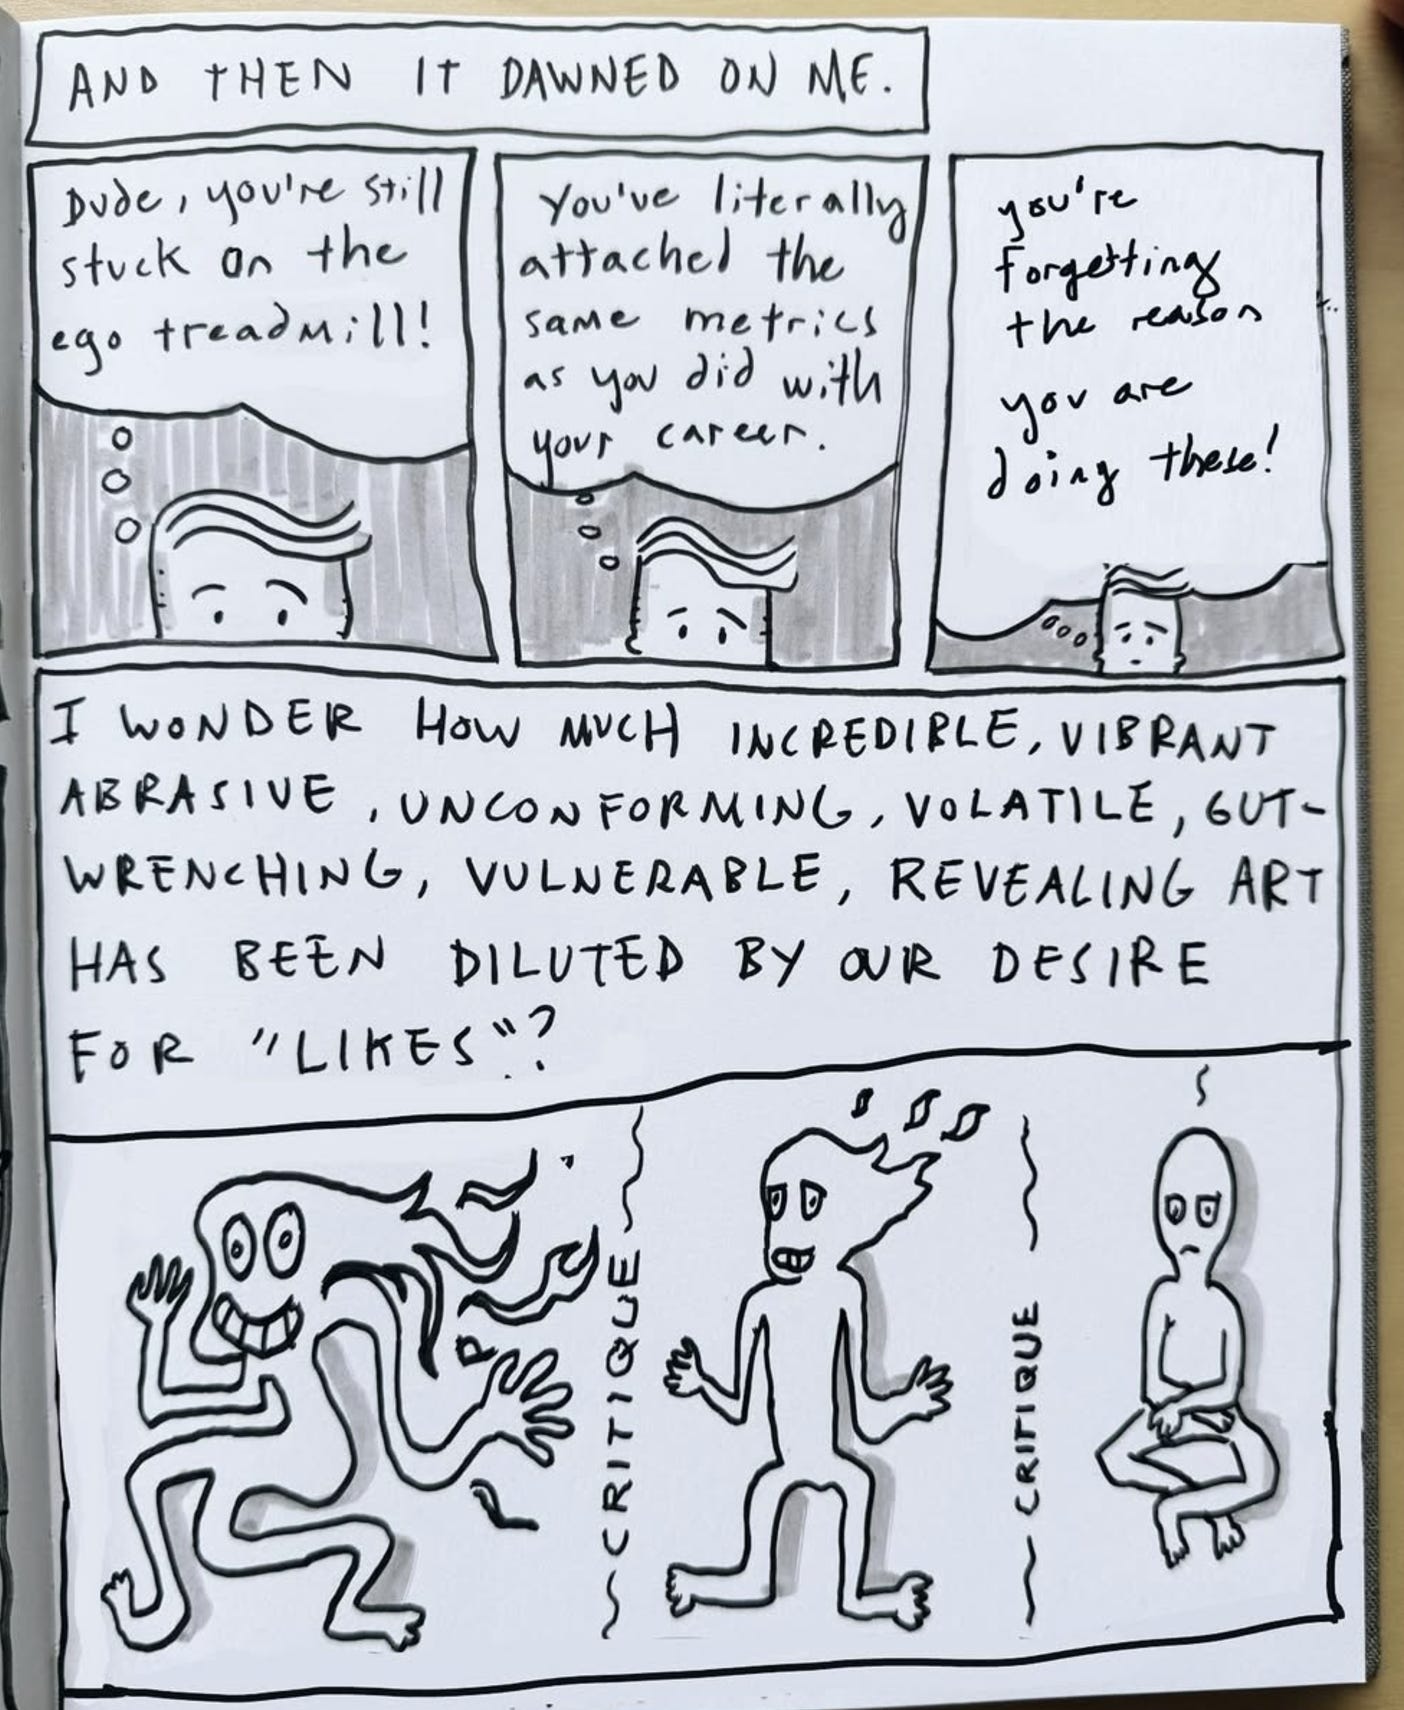 AND THEN IT DAWNED ON ME.
Dude, you're still
stuck on the
ego treadmill!
You've literally
attached the
same metrics
as you did with
your career.
you're
forgetting
the reason
you are
doing these!
I WONDER HOW MUCH INCREDIBLE, VIBRANT
ABRASIVE, UNCONFORMING, VOLATILE, GUT-
WRENCHING, VULNERABLE, REVEALING ART
HAS BEEN DILUTED BY OUR DESIRE
FOR "LIKES"?
CRITIQUE
CRITIQUE